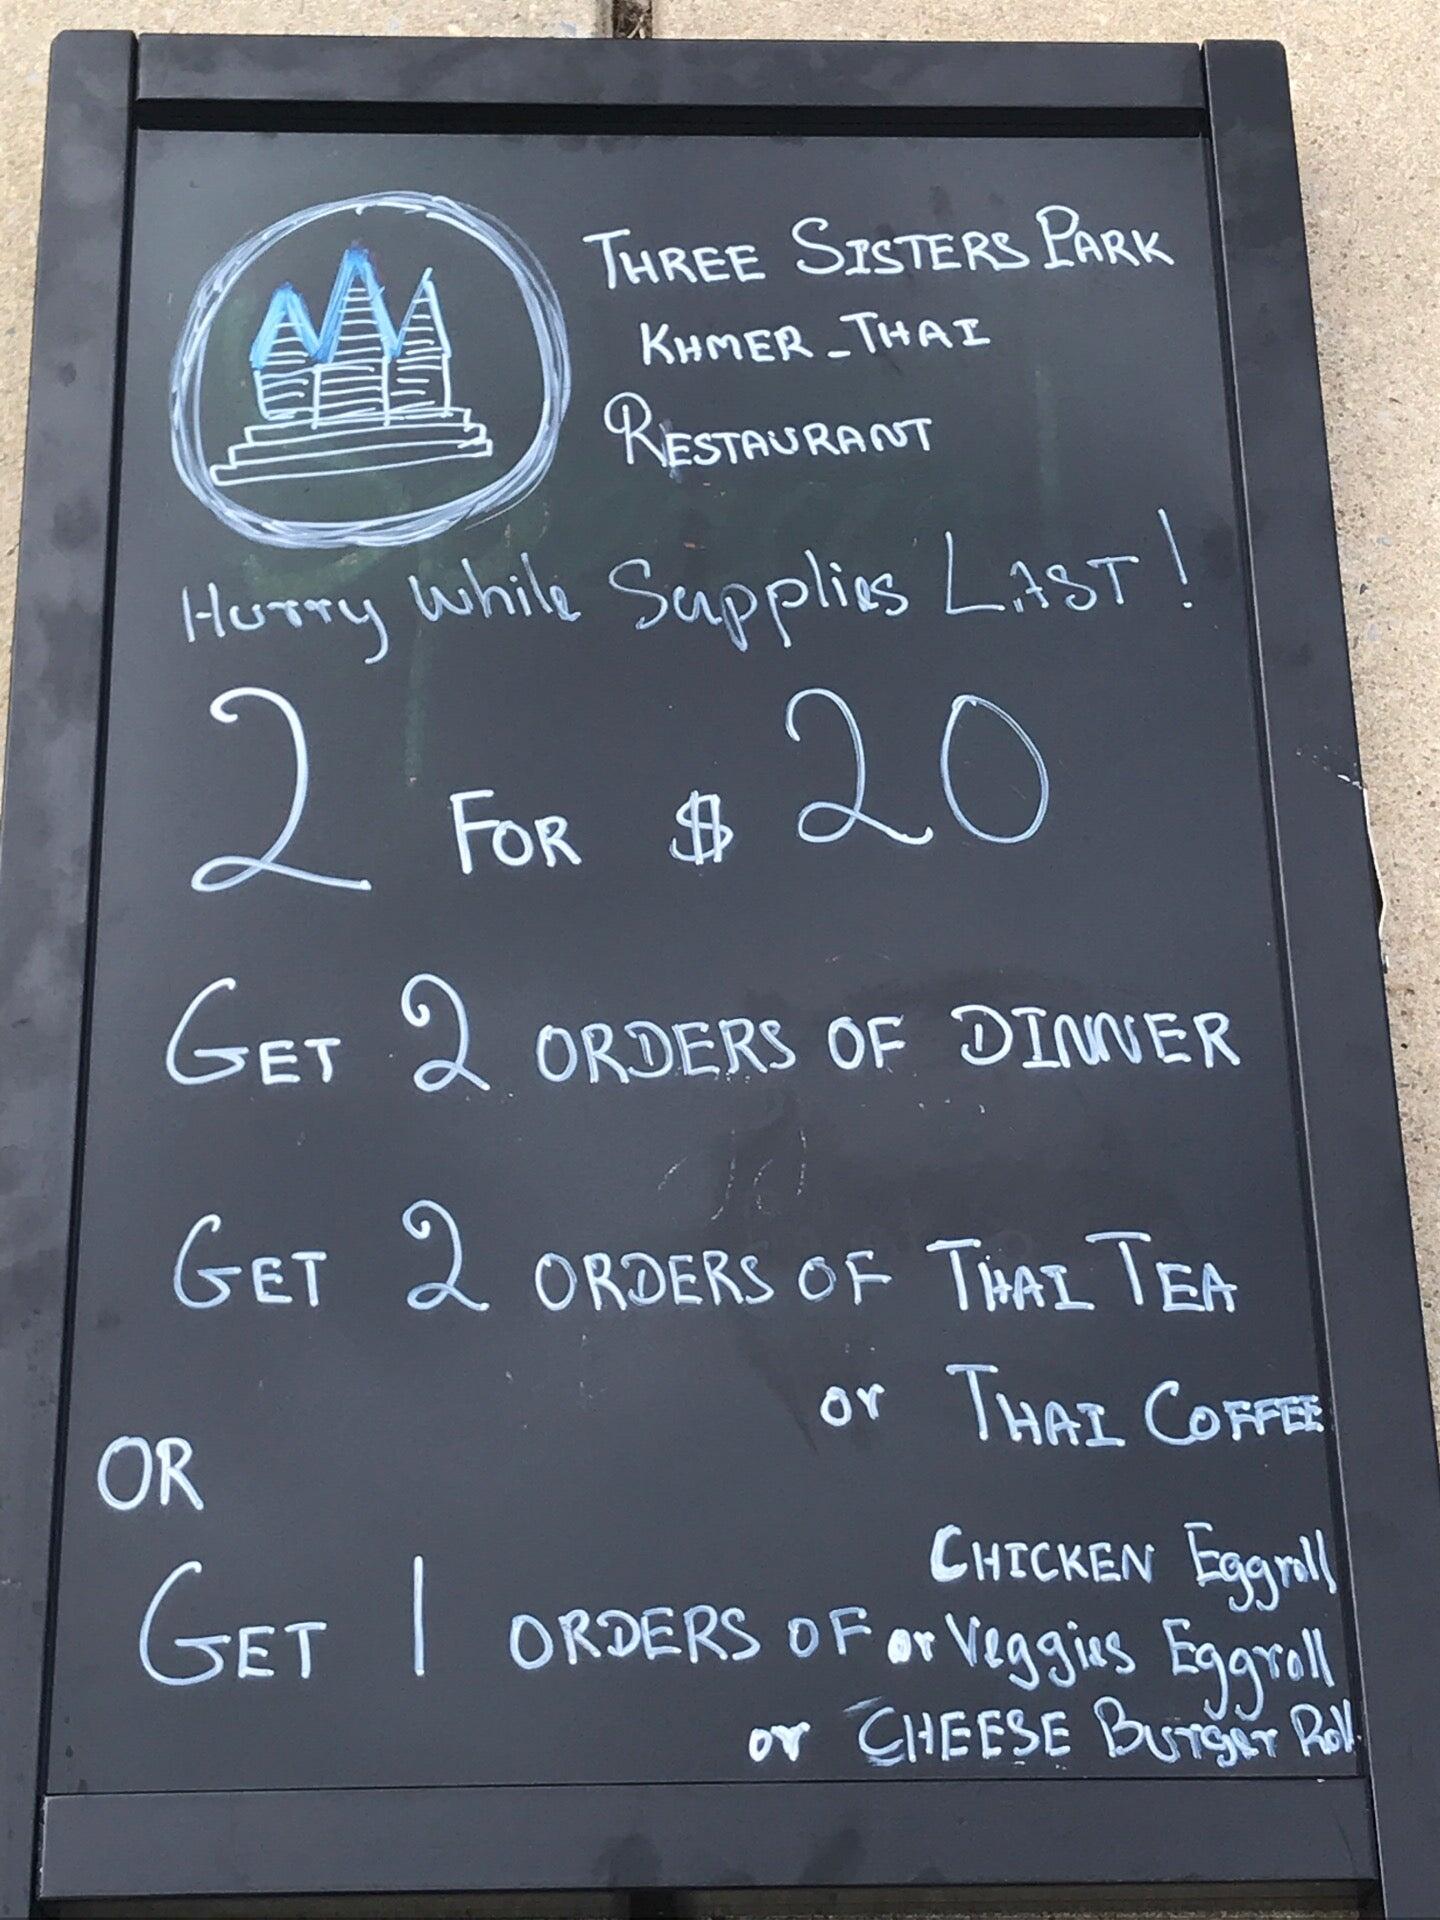 THREE SISTERS PARK
KHMER-THAI
RESTAURANT
Hurry While Supplies LAST!
2 FOR $20
GET 2 ORDERS OF DINNER
GET 2 ORDERS OF THAI TEA
or THAI COFFEE
OR
CHICKEN Eggroll
GET 1 ORDERS OF or Veggies Eggroll
or CHEESE Burger Roll